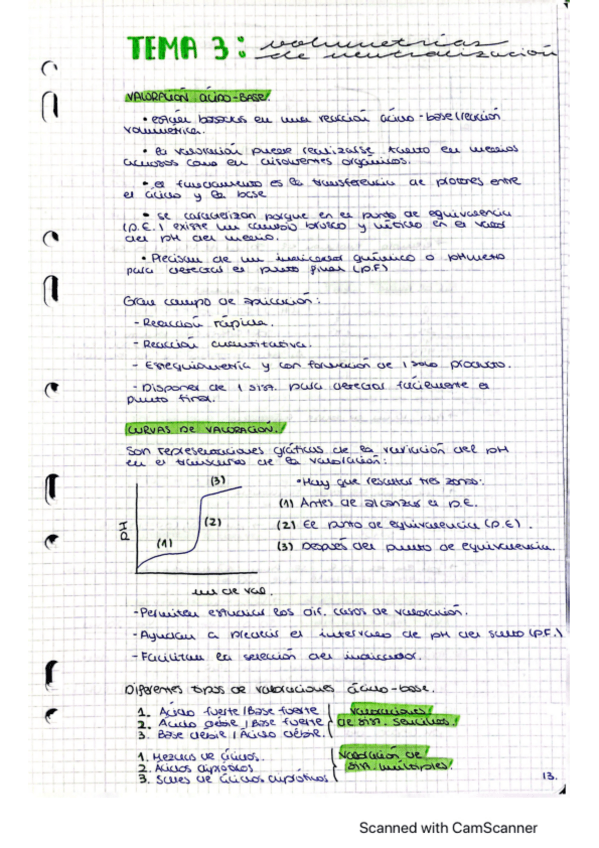 TEMA 3: volumetrías
de neutralización
VALORACIÓN ÁCIDO-BASE.
• están basados en una reacción ácido-base (reacción
volumétrica.
• la valoración puede realizarse tanto en medios
acuosos como en disolventes orgánicos.
• el fundamento es la transferencia de protones entre
el ácido y la base
• se caracterizan porque en el punto de equivalencia
(P.E.) existe un cambio brusco y nítido en el valor
del pH del medio.
• Precisan de un indicador químico o pHmetro
para detectar el punto final (P.F)
Gran campo de aplicación:
- Reacción rápida.
- Reacción cuantitativa.
- Estequiometría y con formación de 1 solo producto.
- Disponer de 1 sist. para detectar fácilmente el
punto final.
CURVAS DE VALORACIÓN.
Son representaciones gráficas de la variación del pH
en el transcurso de la valoración:
pH
(1)
(2)
(3)
ml de val.
• Hay que resaltar tres zonas:
(1) Antes de alcanzar el P.E.
(2) El punto de equivalencia (P.E).
(3) Después del punto de equivalencia.
- Permiten estudiar los dif. casos de valoración.
- Ayudan a predecir el intervalo de pH del salto (P.F.)
- Facilitan la selección del indicador.
Diferentes tipos de valoraciones ácido-base.
1. Ácido fuerte/Base fuerte
2. Ácido débil / Base fuerte
3. Base débil / Ácido débil.
valoraciones
de sist. sencillos.
1. Mezclas de ácidos.
2. Ácidos dipróticos
3. Sales de ácidos dipróticos
Valoración de
sist. múltiples.
13.
Scanned with CamScanner